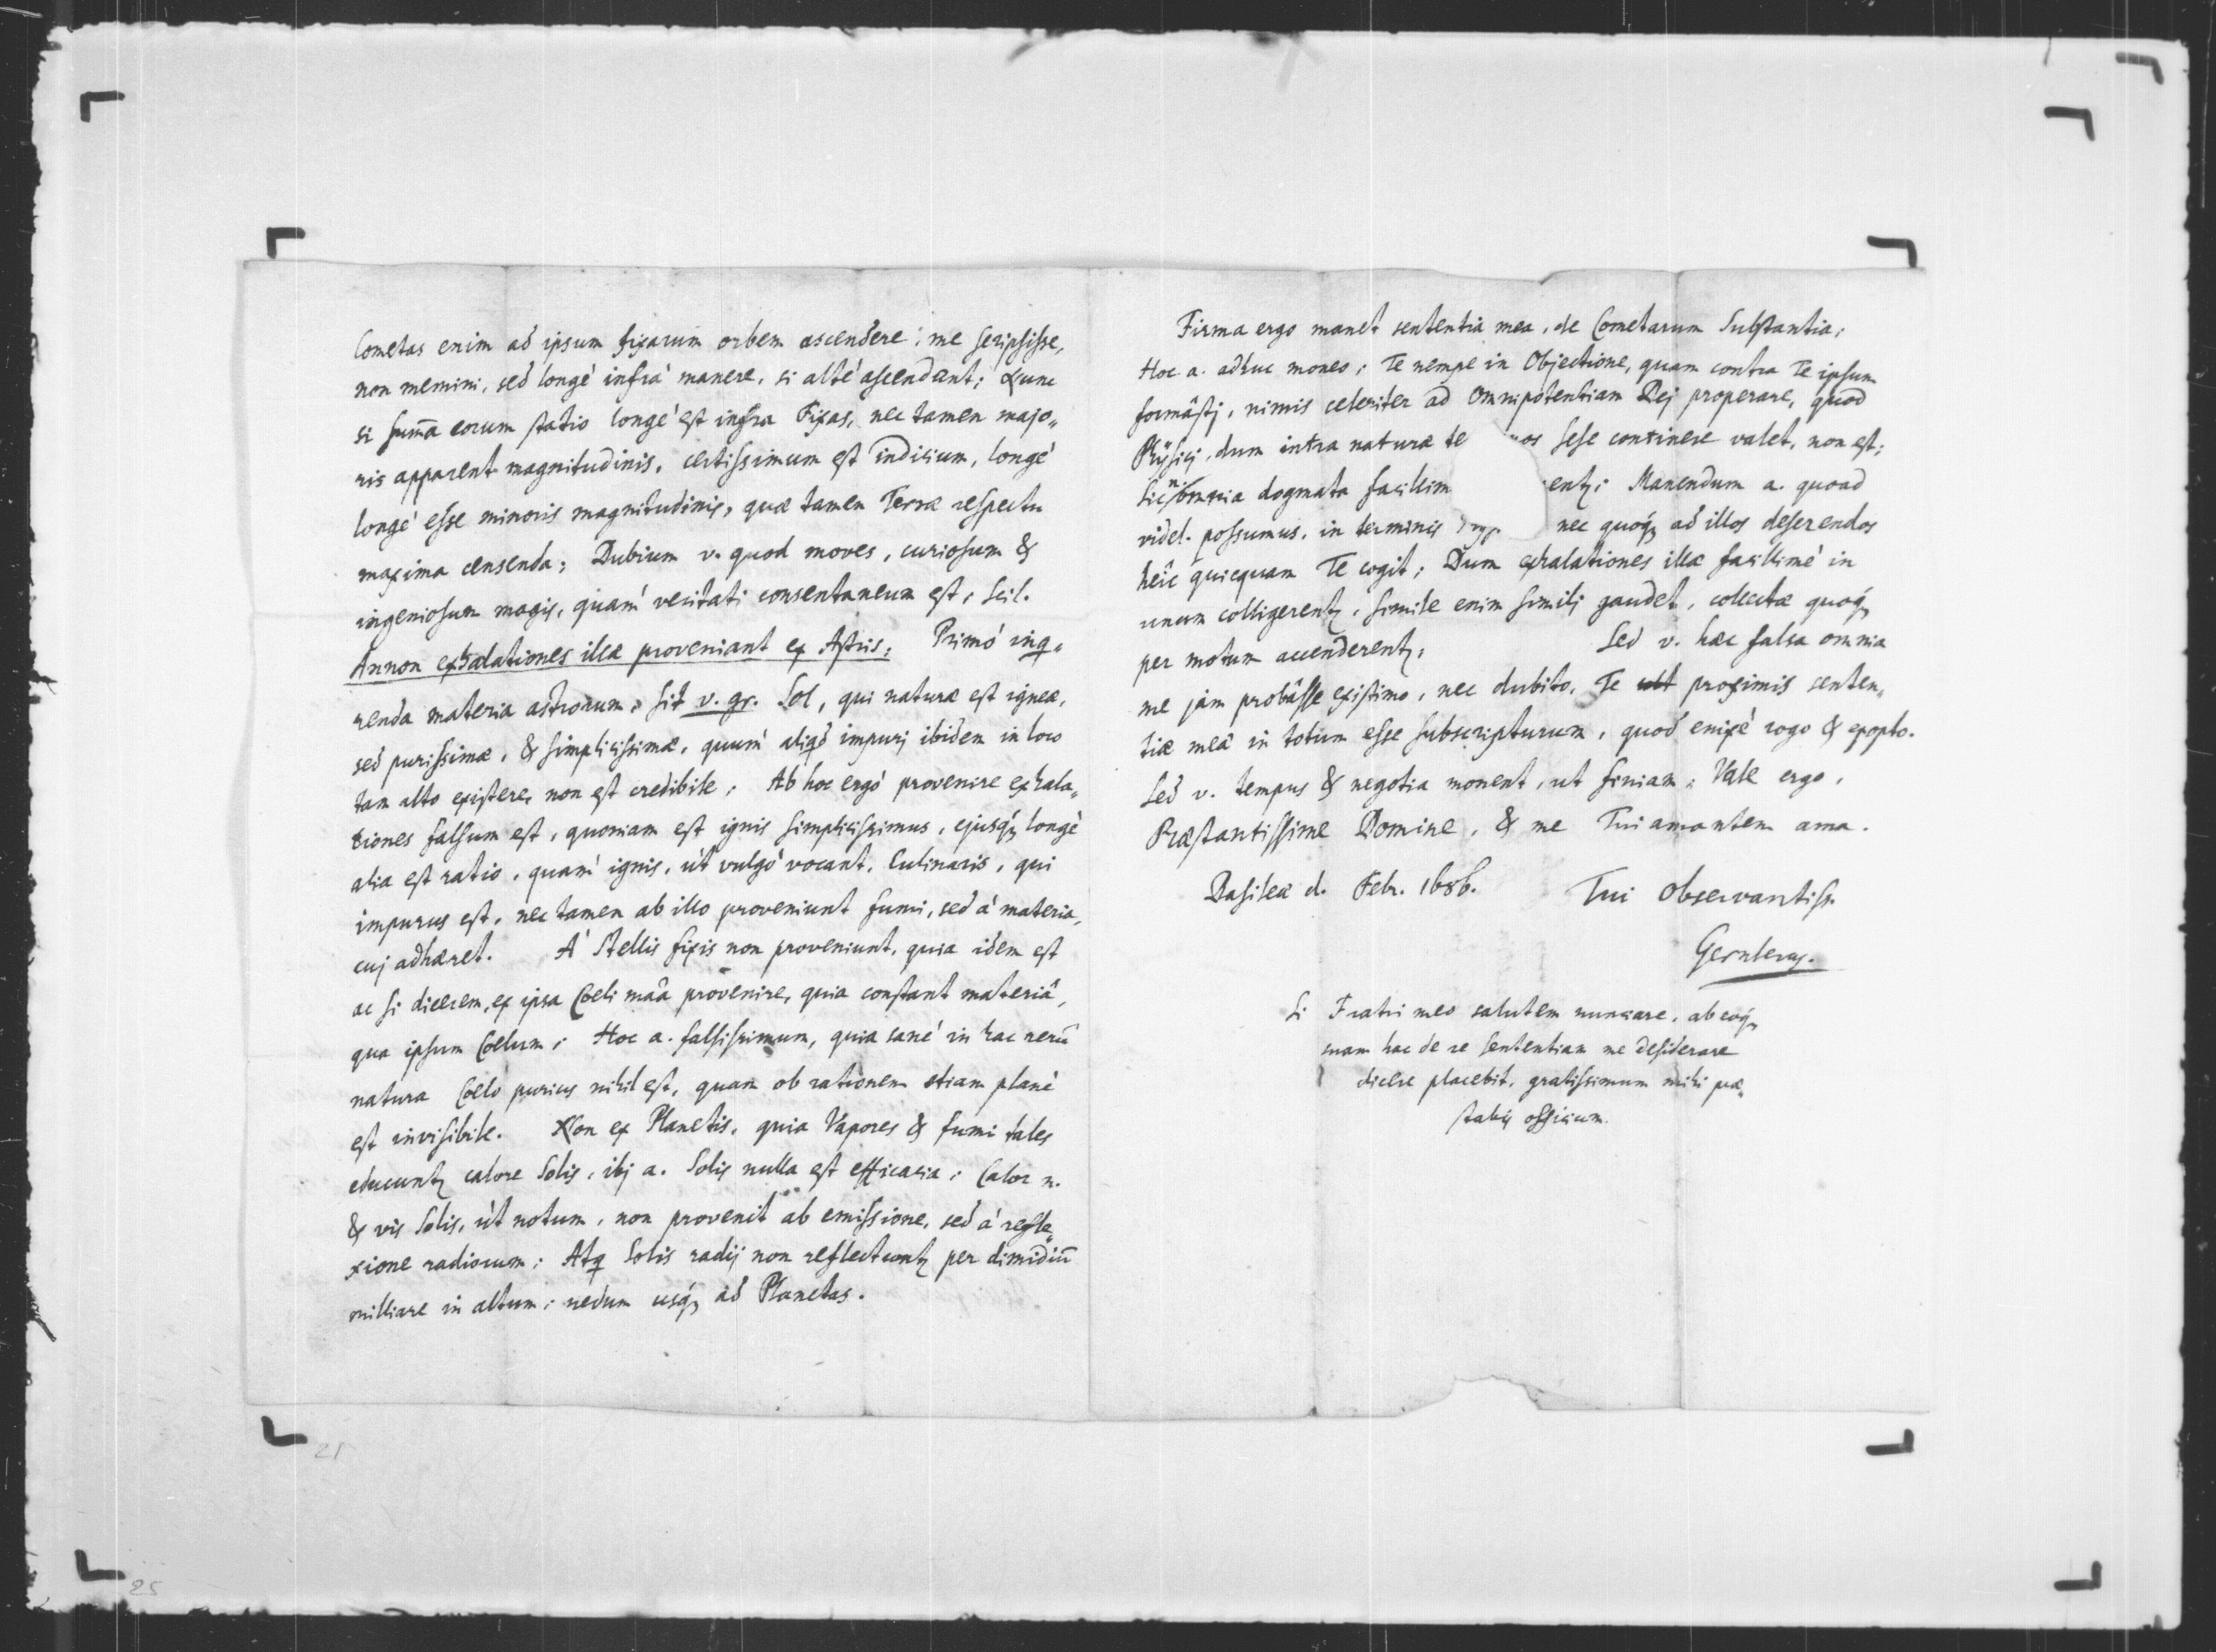 Cometas enim ad ipsum fixarum orbem ascendere, me scripsisse,
non memini, sed longè infrà manere, si altè ascendant; Nunc
si sum̄a eorum statio longè est infra Fixas, nec tamen majo„
ris apparent magnitudinis, certissimum est indicium, longè
longè esse minoris magnitudinis, quæ tamen Terræ respectu
maxima censenda; Dubium v. quod moves, curiosum &
ingeniosum magis, quàm veritati consentaneum est, scil.
Annon exhalationes illæ proveniant ex Astris; Primò inq„
renda materia astrorum, sit v. gr. Sol, qui naturæ est igneæ,
sed purissimæ, & simplicissimæ, quùm aliqd impurj ibidem in loco
tam alto existere, non est credibile; Ab hoc ergò provenire exhala„
tiones falsum est, quoniam est ignis simplicissimus, ejusq́ꝫ longè
alia est ratio, quàm ignis, ùt vulgò vocant, Culinaris, qui
impurus est, nec tamen ab illo proveniunt fumi, sed à materia,
cuj adhæret. À Stellis fixis non proveniunt, quia idem est
ac si dicerem, ex ipsa Coeli maâ provenire, quia constant materiâ,
qua ipsum Coelum; Hoc a. falsissimum, quia sanè in hac rerū
natura Coelo purius nihil est, quam ob rationem etiam planè
est invisibile. Non ex Planetis, quia Vapores & fumi tales
educuntꝫ calore Solis, ibj a. Solis nulla est efficacia; Calor n.
& vis Solis, ùt notum, non provenit ab emissione, sed à refle„
xione radiorum; Atq Solis radij non reflectuntꝫ per dimidiū
milliare in altum, nedum usq́ꝫ ad Planetas.
Firma ergo manet sententia mea, de Cometarum Substantia;
Hoc a. adhuc moneo; Te nempe in Objectione, quam contra Te ipsum
formâstj, nimis celeriter ad Omnipotentiam Dej properare, quod
Physicj, dum intra naturæ te nos sese continere valet, non est;
Sic n. omnia dogmata facillim entꝫ; Manendum a. quoad
videl. possumus, in terminis nec quoq́ꝫ ad illos deserendos
heîc quicquam Te cogit; Dum exhalationes illæ facillimè in
unum colligerentꝫ, simile enim similj gaudet, collectæ quoq́ꝫ
per motum accenderentꝫ; Sed v. hæc falsa omnia
me jàm probâsse existimo, nec dubito, Te proximis senten„
tiæ meæ in totum esse subscripturum, quod enixè rogo & exopto.
Sed v. tempus & negotia monent, ut finiam; Vale ergo,
Præstantissime Domine, & me Tui amantem ama.
Basileæ d. Febr. 1686. Tui Observantiss.
Gernlerus.
Si Fratri meo salutem nunciare, ab eoq́ꝫ
suam hac de re sententiam me desiderare
dicere placebit, gratissimum mihi præ„
stabis officium.
21
25